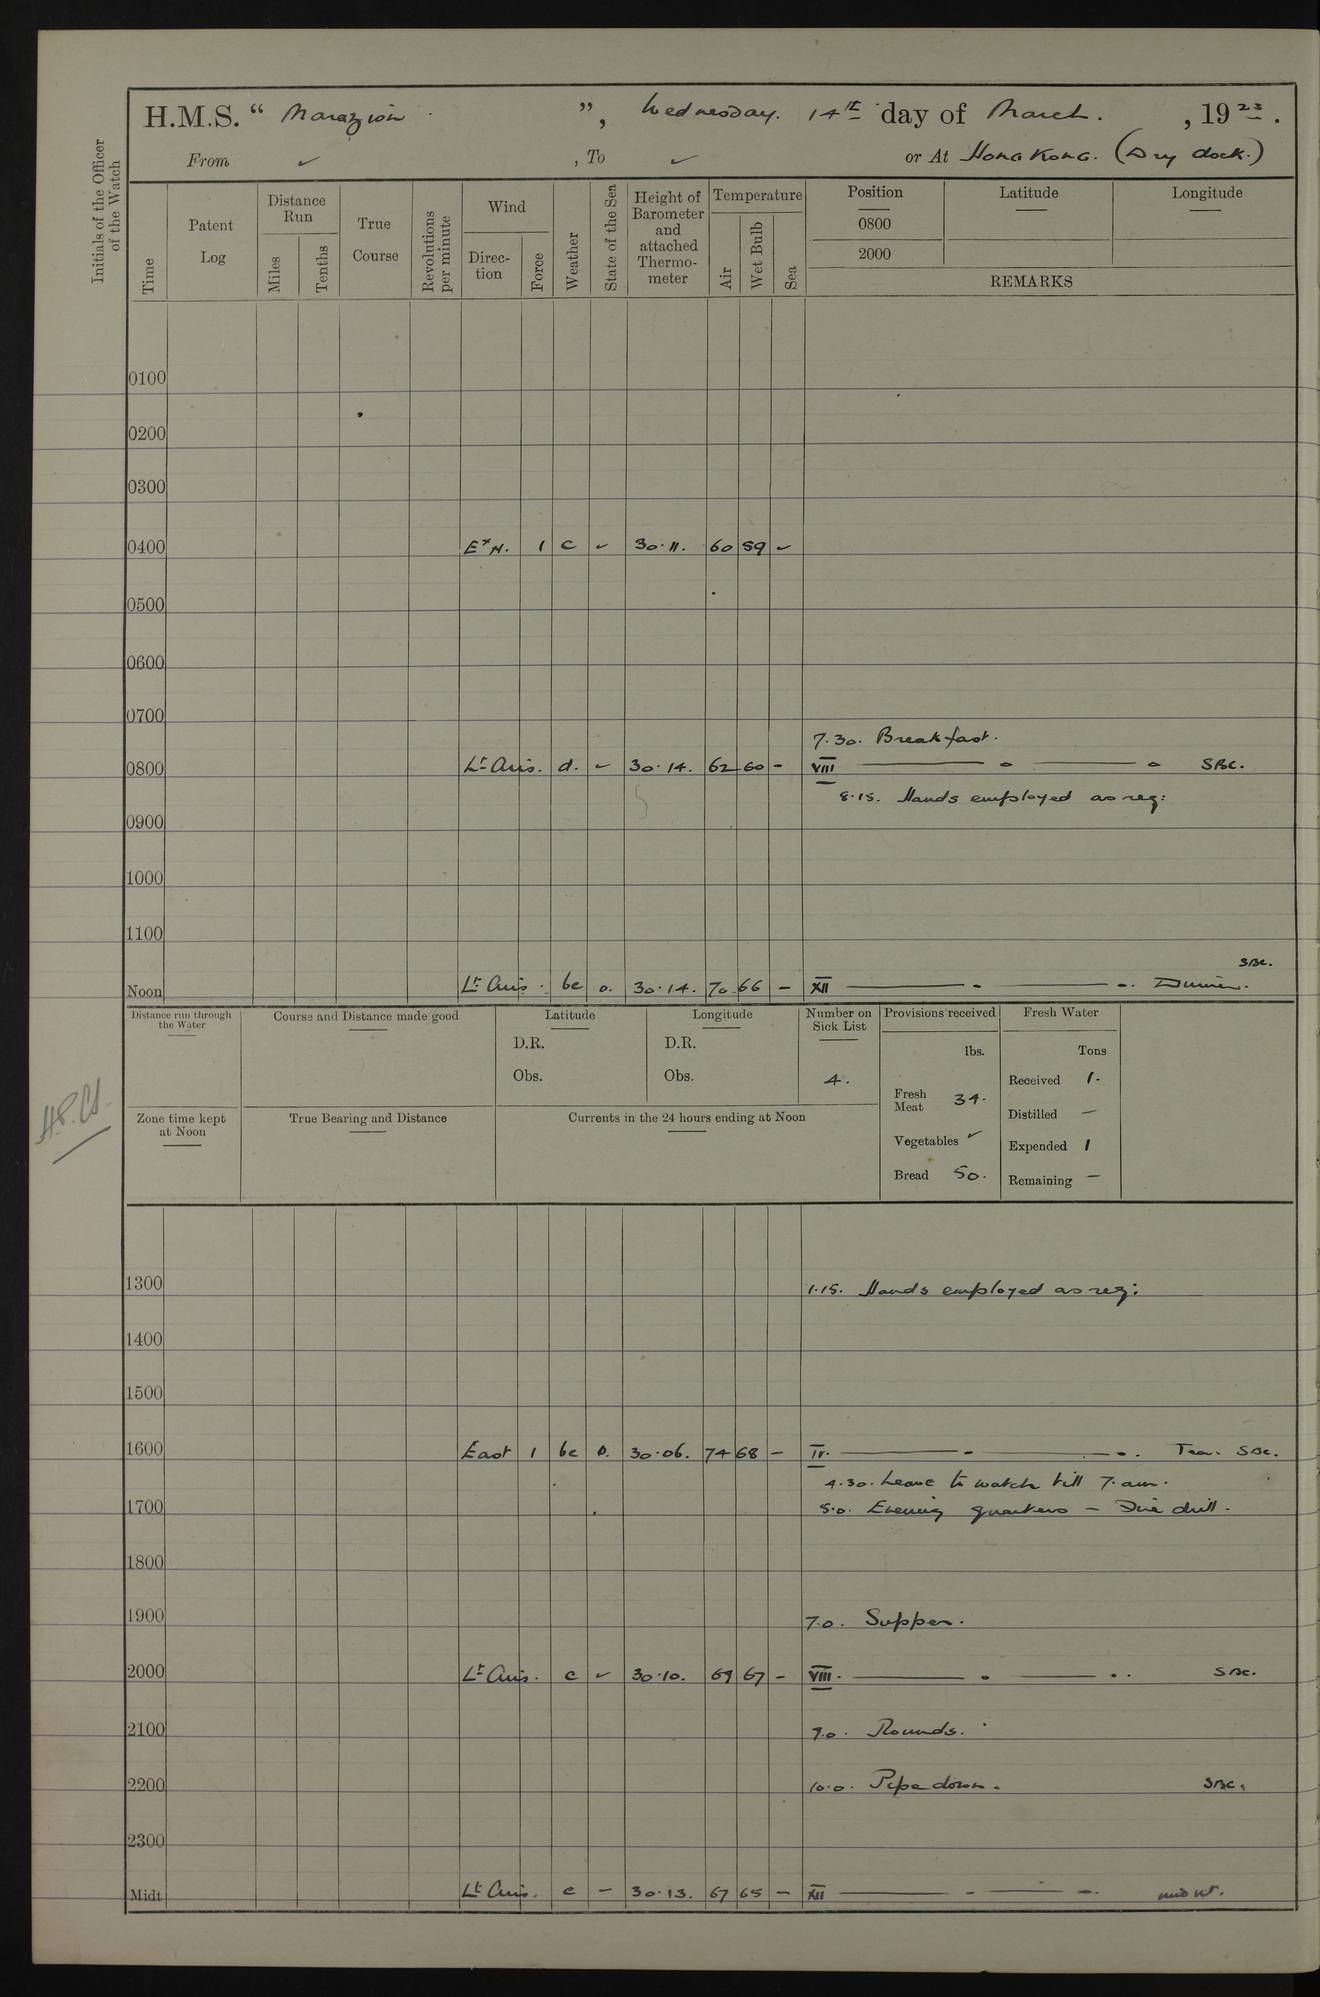 H.M.S. “ Marazion ”, Wednesday. 14th day of March. , 19 23 .
From ✓ , To ✓ or At Hong Kong. (Dry dock.)
Initials of the Officer of the Watch
Time
Patent Log
Distance Run
Miles
Tenths
True Course
Revolutions per minute
Wind
Direc-tion
Force
Weather
State of the Sea
Height of Barometer and attached Thermo-meter
Temperature
Air
Wet Bulb
Sea
Position
Latitude
Longitude
0800
2000
REMARKS
0100
0200
0300
0400 ExN. 1 c ✓ 30.11. 60 59 ✓
0500
0600
0700
7.30. Breakfast.
0800 Lt Airs. d. ✓ 30.14. 62 60 - VIII SBC.
8.15. Hands employed as req:
0900
1000
1100
SBC.
Noon Lt Airs. bc o. 30.14. 70 66 - XII Dinner.
Distance run through the Water
Course and Distance made good
Latitude
D.R.
Obs.
Longitude
D.R.
Obs.
Number on Sick List
4.
Provisions received
lbs.
Fresh Meat 34.
Vegetables ✓
Bread 50.
Fresh Water
Tons
Received 1.
Distilled —
Expended 1
Remaining —
Zone time kept at Noon
True Bearing and Distance
Currents in the 24 hours ending at Noon
1300 1.15. Hands employed as req:
1400
1500
1600 East 1 bc o. 30.06. 74 68 - IV. Tea. SBC.
4.30. Leave to watch till 7.am.
1700 5.0. Evening quarters – Fire drill.
1800
1900 7.0. Supper.
2000 Lt Airs. c ✓ 30.10. 69 67 - VIII. SBC.
2100 9.0. Rounds.
2200 10.0. Pipe down. SBC.
2300
Midt Lt Airs. c – 30.13. 67 65 - XII